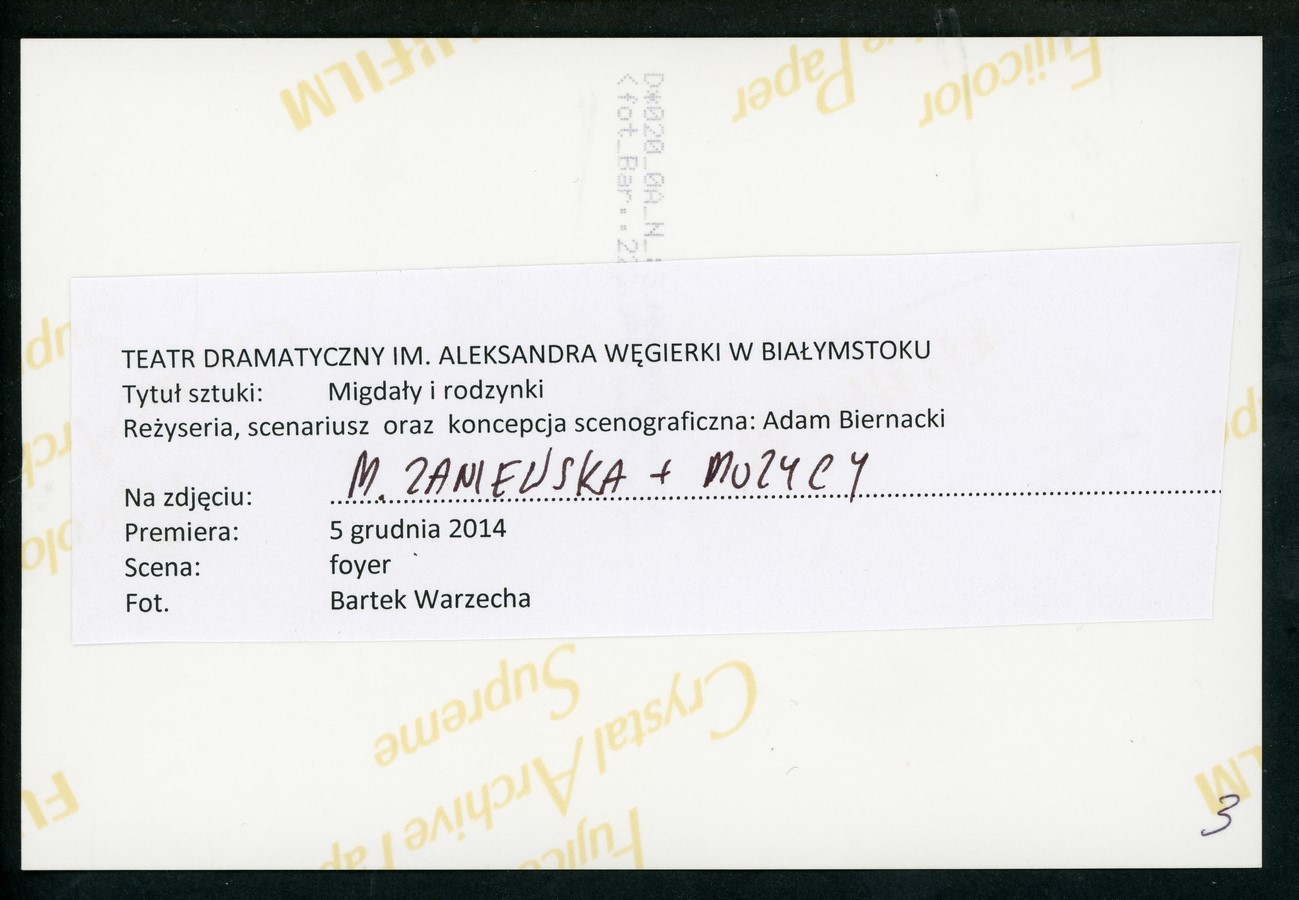 FUJIFILM
Paper
Fujicolor
D*020_0A_N_
<fot_Bar.:22
TEATR DRAMATYCZNY IM. ALEKSANDRA WĘGIERKI W BIAŁYMSTOKU
Tytuł sztuki: Migdały i rodzynki
Reżyseria, scenariusz oraz koncepcja scenograficzna: Adam Biernacki
Na zdjęciu: M. ZANIEWSKA + MUZYCY
Premiera: 5 grudnia 2014
Scena: foyer
Fot. Bartek Warzecha
Supreme
Crystal Archive Paper
3